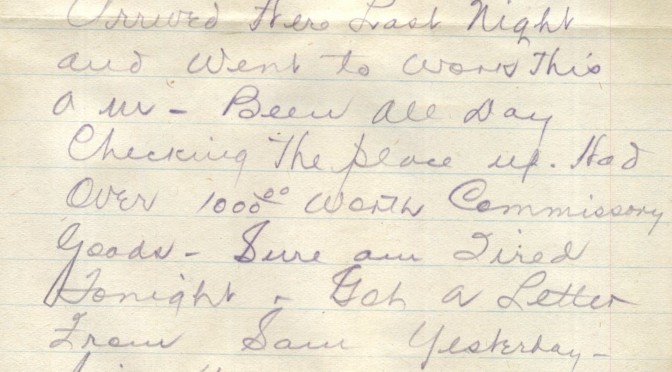 Arrived Here Last Night
and Went to Work This
a m - Been All Day
Checking The place up. Had
Over 1000.00 Worth Commissory
Goods - Sure am Tired
Tonight - Got a Letter
From Sam Yesterday -